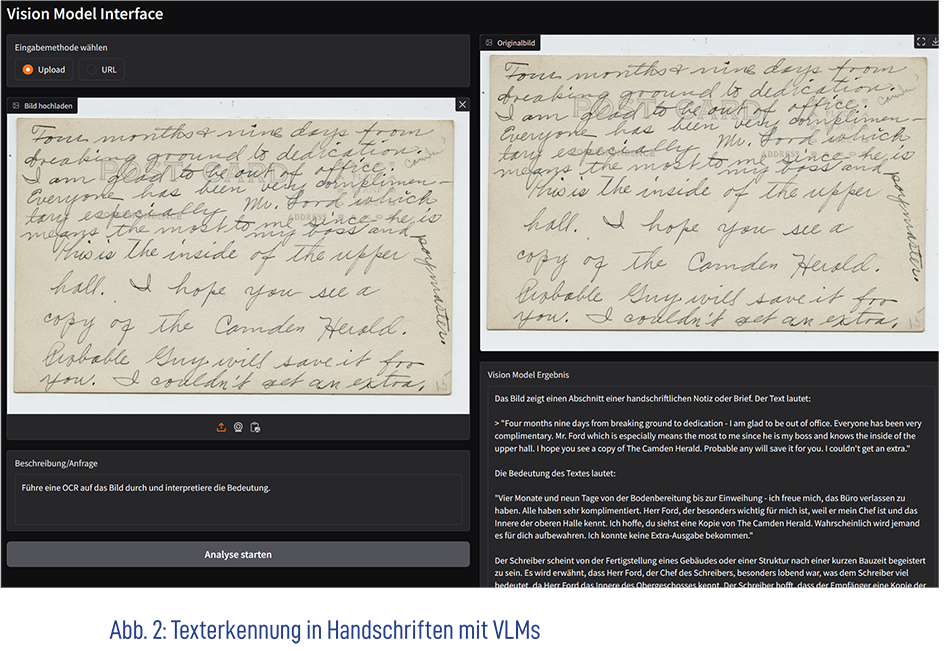 Vision Model Interface
Eingabemethode wählen
Upload
URL
Bild hochladen
Four months & nine days from
breaking ground to dedication.
I am glad to be out of office.
Camden
Everyone has been very complimen-
tary especially Mr. Ford which
means the most to me since he is
my boss and
paymaster.
This is the inside of the upper
hall. I hope you see a
copy of the Camden Herald.
Probable Guy will save it for
you. I couldn't get an extra.
15
POST CARD
CORRESPONDENCE
ADDRESS
Beschreibung/Anfrage
Führe eine OCR auf das Bild durch und interpretiere die Bedeutung.
Analyse starten
Originalbild
Four months & nine days from
breaking ground to dedication.
I am glad to be out of office.
Camden
Everyone has been very complimen-
tary especially Mr. Ford which
means the most to me since he is
my boss and
paymaster.
This is the inside of the upper
hall. I hope you see a
copy of the Camden Herald.
Probable Guy will save it for
you. I couldn't get an extra.
15
POST CARD
ADDRESS
Vision Model Ergebnis
Das Bild zeigt einen Abschnitt einer handschriftlichen Notiz oder Brief. Der Text lautet:
> "Four months nine days from breaking ground to dedication - I am glad to be out of office. Everyone has been very
complimentary. Mr. Ford which is especially means the most to me since he is my boss and knows the inside of the
upper hall. I hope you see a copy of The Camden Herald. Probable any will save it for you. I couldn't get an extra."
Die Bedeutung des Textes lautet:
"Vier Monate und neun Tage von der Bodenbereitung bis zur Einweihung - ich freue mich, das Büro verlassen zu
haben. Alle haben sehr komplimentiert. Herr Ford, der besonders wichtig für mich ist, weil er mein Chef ist und das
Innere der oberen Halle kennt. Ich hoffe, du siehst eine Kopie von The Camden Herald. Wahrscheinlich wird jemand
es für dich aufbewahren. Ich konnte keine Extra-Ausgabe bekommen."
Der Schreiber scheint von der Fertigstellung eines Gebäudes oder einer Struktur nach einer kurzen Bauzeit begeistert
zu sein. Es wird erwähnt, dass Herr Ford, der Chef des Schreibers, besonders lobend war, was dem Schreiber viel
bedeutet, da Herr Ford das Innere des Obergeschosses kennt. Der Schreiber hofft, dass der Empfänger eine Kopie der
Abb. 2: Texterkennung in Handschriften mit VLMs